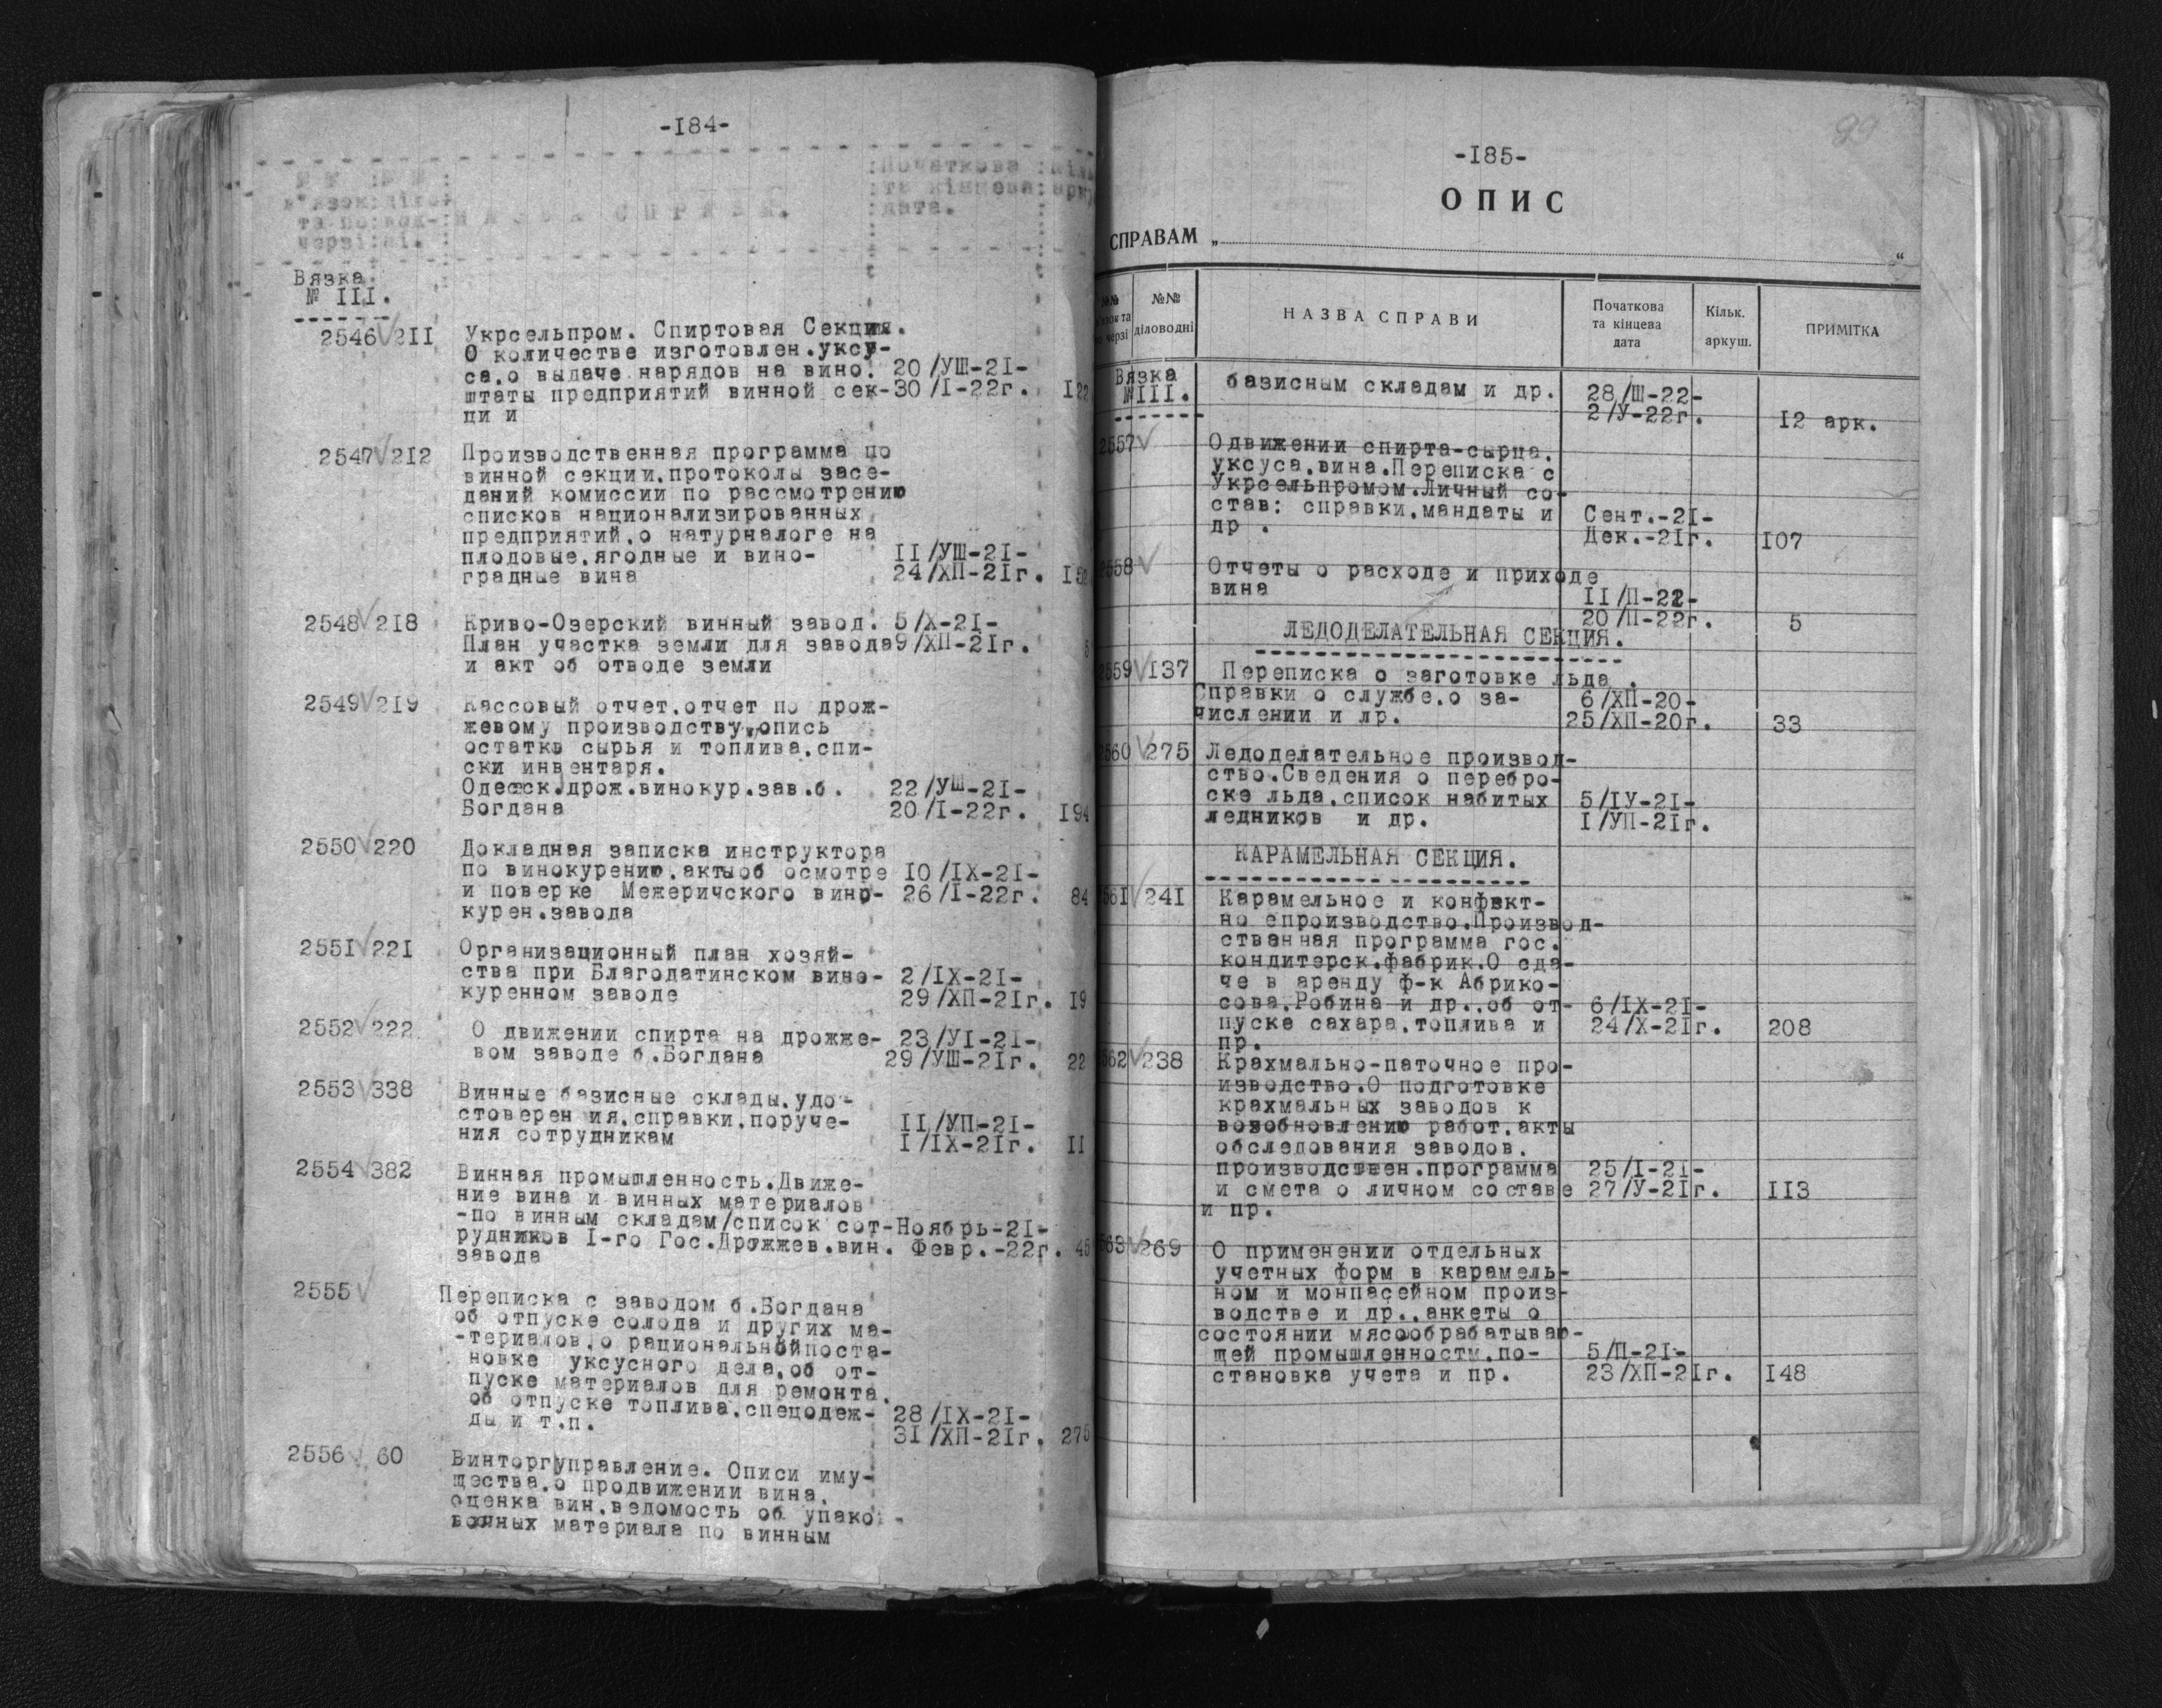 -184-
Початкова
та кінцева
дата.
НАЗВА СПРАВИ.
Вязка
№ III.
2546 211 Укрсельпром. Спиртовая Секция.
О количестве изготовлен.уксу-
са,о выдаче нарядов на вино. 20/УШ-21-
штаты предприятий винной сек- 30/I-22г. 122
ци и
2547 212 Производственная программа по
винной секции,протоколы засе-
даний комиссии по рассмотрению
списков национализированных
предприятий,о натурналоге на
плодовые,ягодные и вино- II/УШ-21-
градные вина 24/ХП-21г. 152
2548 218 Криво-Озерский винный завод. 5/Х-21-
План участка земли для завода 9/ХП-21г. 5
и акт об отводе земли
2549 219 Кассовый отчет,отчет по дрож-
жевому производству,опись
остатка сырья и топлива,спи-
ски инвентаря.
Одесск.дрож.винокур.зав.б. 22/УШ-21-
Богдана 20/I-22г. 194
2550 220 Докладная записка инструктора
по винокурению,акты об осмотре 10/IX-21-
и поверке Межеричского вино- 26/I-22г. 84
курен.завода
2551 221 Организационный план хозяй-
ства при Благодатинском вино- 2/IX-21-
куренном заводе 29/ХП-21г. 19
2552 222 О движении спирта на дрожже- 23/УI-21-
вом заводе б.Богдана 29/УШ-21г. 22
2553 338 Винные базисные склады,удо-
стоверен ия,справки,поруче- II/УП-21-
ния сотрудникам I/IX-21г. II
2554 382 Винная промышленность.Движе-
ние вина и винных материалов
-по винным складам/список сот- Ноябрь-21-
рудников I-го Гос.Дрожжев.вин. Февр.-22г. 45
завода
2555 Переписка с заводом б.Богдана
об отпуске солода и других ма-
-териалов,о рациональной поста-
новке уксусного дела,об от-
пуске материалов для ремонта,
об отпуске топлива,спецодеж- 28/IX-21-
ды и т.п. 31/ХП-21г. 275
2556 60 Винторгуправление. Описи иму-
щества,о продвижении вина,
оценка вин,ведомость об упако-
вочных материала по винным
99
-185-
ОПИС
СПРАВАМ „ “
№№ діловодні
НАЗВА СПРАВИ
Початкова та кінцева дата
Кільк. аркуш.
ПРИМІТКА
Вязка
№III.
базисным складам и др. 28/Ш-22-
2/У-22г. 12 арк.
2557 О движении спирта-сырца,
уксуса,вина.Переписка с
Укрсельпромом.Личный со-
став: справки,мандаты и Сент.-21-
др . Дек.-21г. 107
2558 Отчеты о расходе и приходе
вина II/П-22-
20/П-22г. 5
ЛЕДОДЕЛАТЕЛЬНАЯ СЕКЦИЯ.
2559 137 Переписка о заготовке льда .
Справки о службе,о за- 6/ХП-20-
числении и др. 25/ХП-20г. 33
2560 275 Ледоделательное производ-
ство.Сведения о перебро-
ске льда,список набитых 5/IУ-21-
ледников и др. I/УП-21г.
КАРАМЕЛЬНАЯ СЕКЦИЯ.
2561 241 Карамельное и конфект-
но епроизводство.Производ-
ственная программа гос.
кондитерск.фабрик.О сда-
че в аренду ф-к Абрико-
сова,Робина и др.,об от- 6/IX-21-
пуске сахара,топлива и 24/Х-21г. 208
пр.
562 238 Крахмально-паточное про-
изводство.О подготовке
крахмальных заводов к
возобновлению работ,акты
обследования заводов,
производствен.программа 25/I-21-
и смета о личном составе 27/У-21г. 113
и пр.
563 269 О применении отдельных
учетных форм в карамель-
ном и монпасейном произ-
водстве и др.,анкеты о
состоянии мясообрабатываю-
щей промышленности,по- 5/П-21-
становка учета и пр. 23/ХП-21г. 148